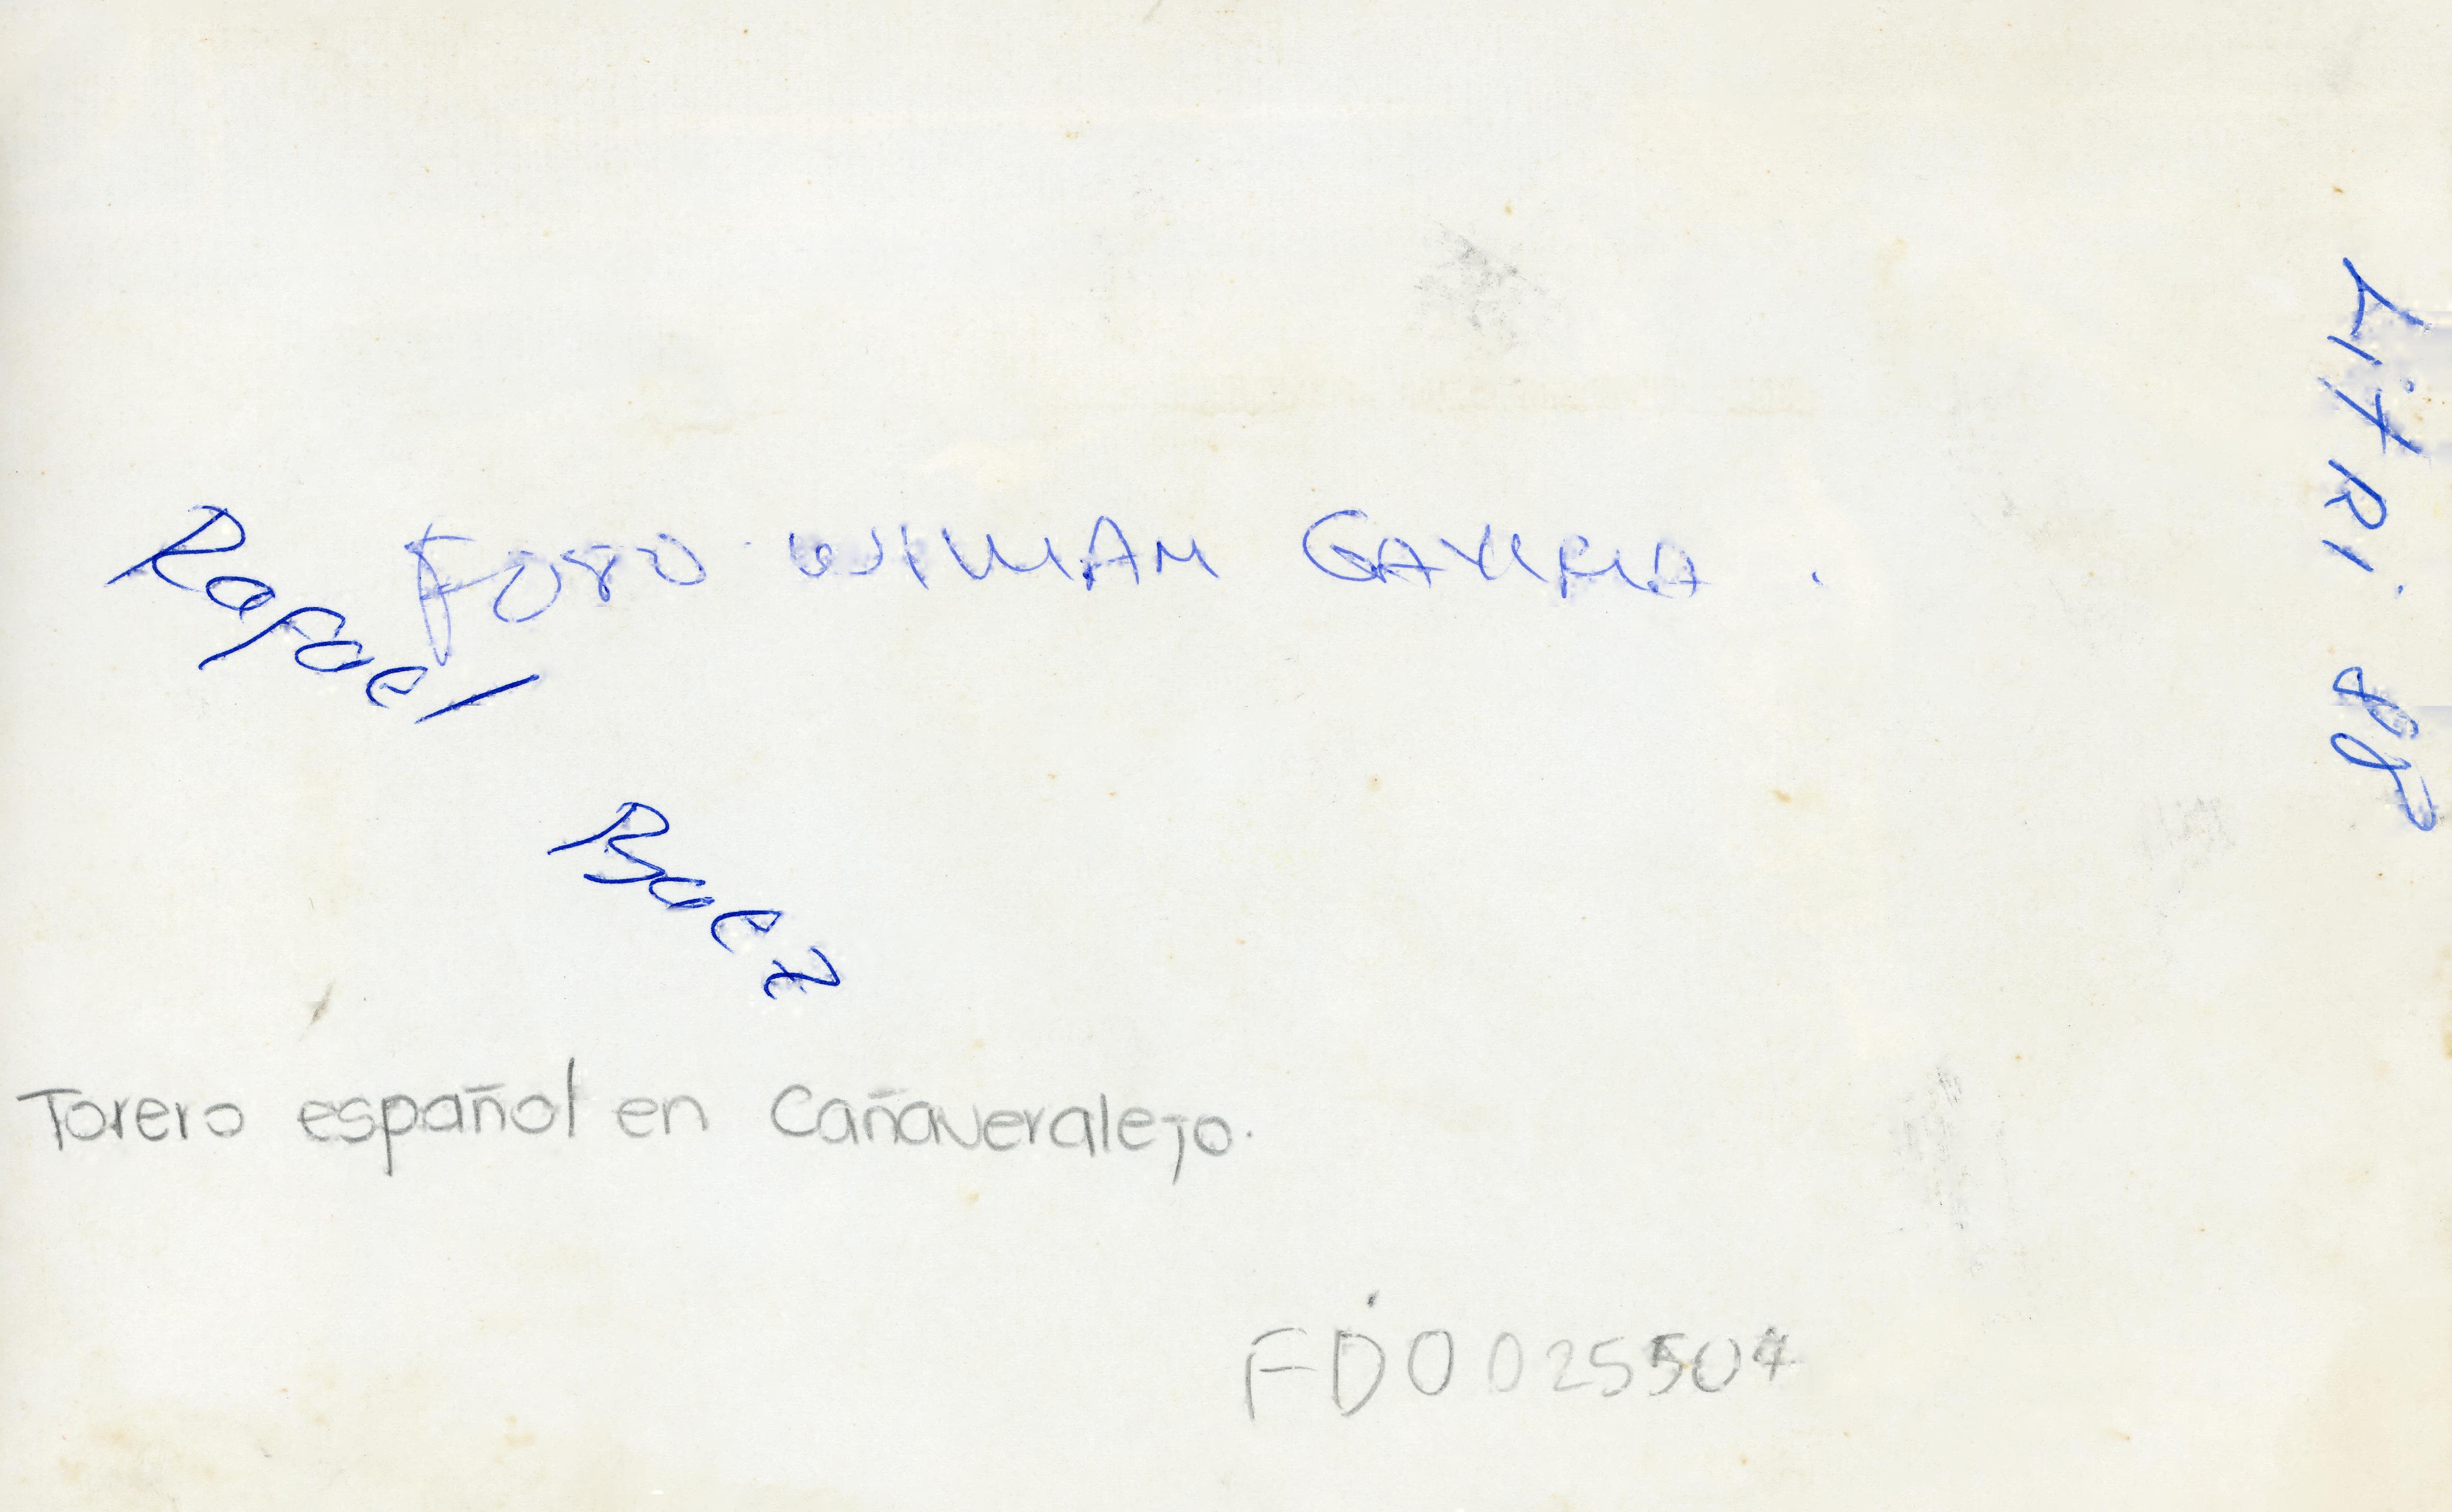 FOTO WILLIAM GAVIRIA.
Rafael
Baez
LiTRi. 88
Torero español en Cañaveralejo.
FD0025504